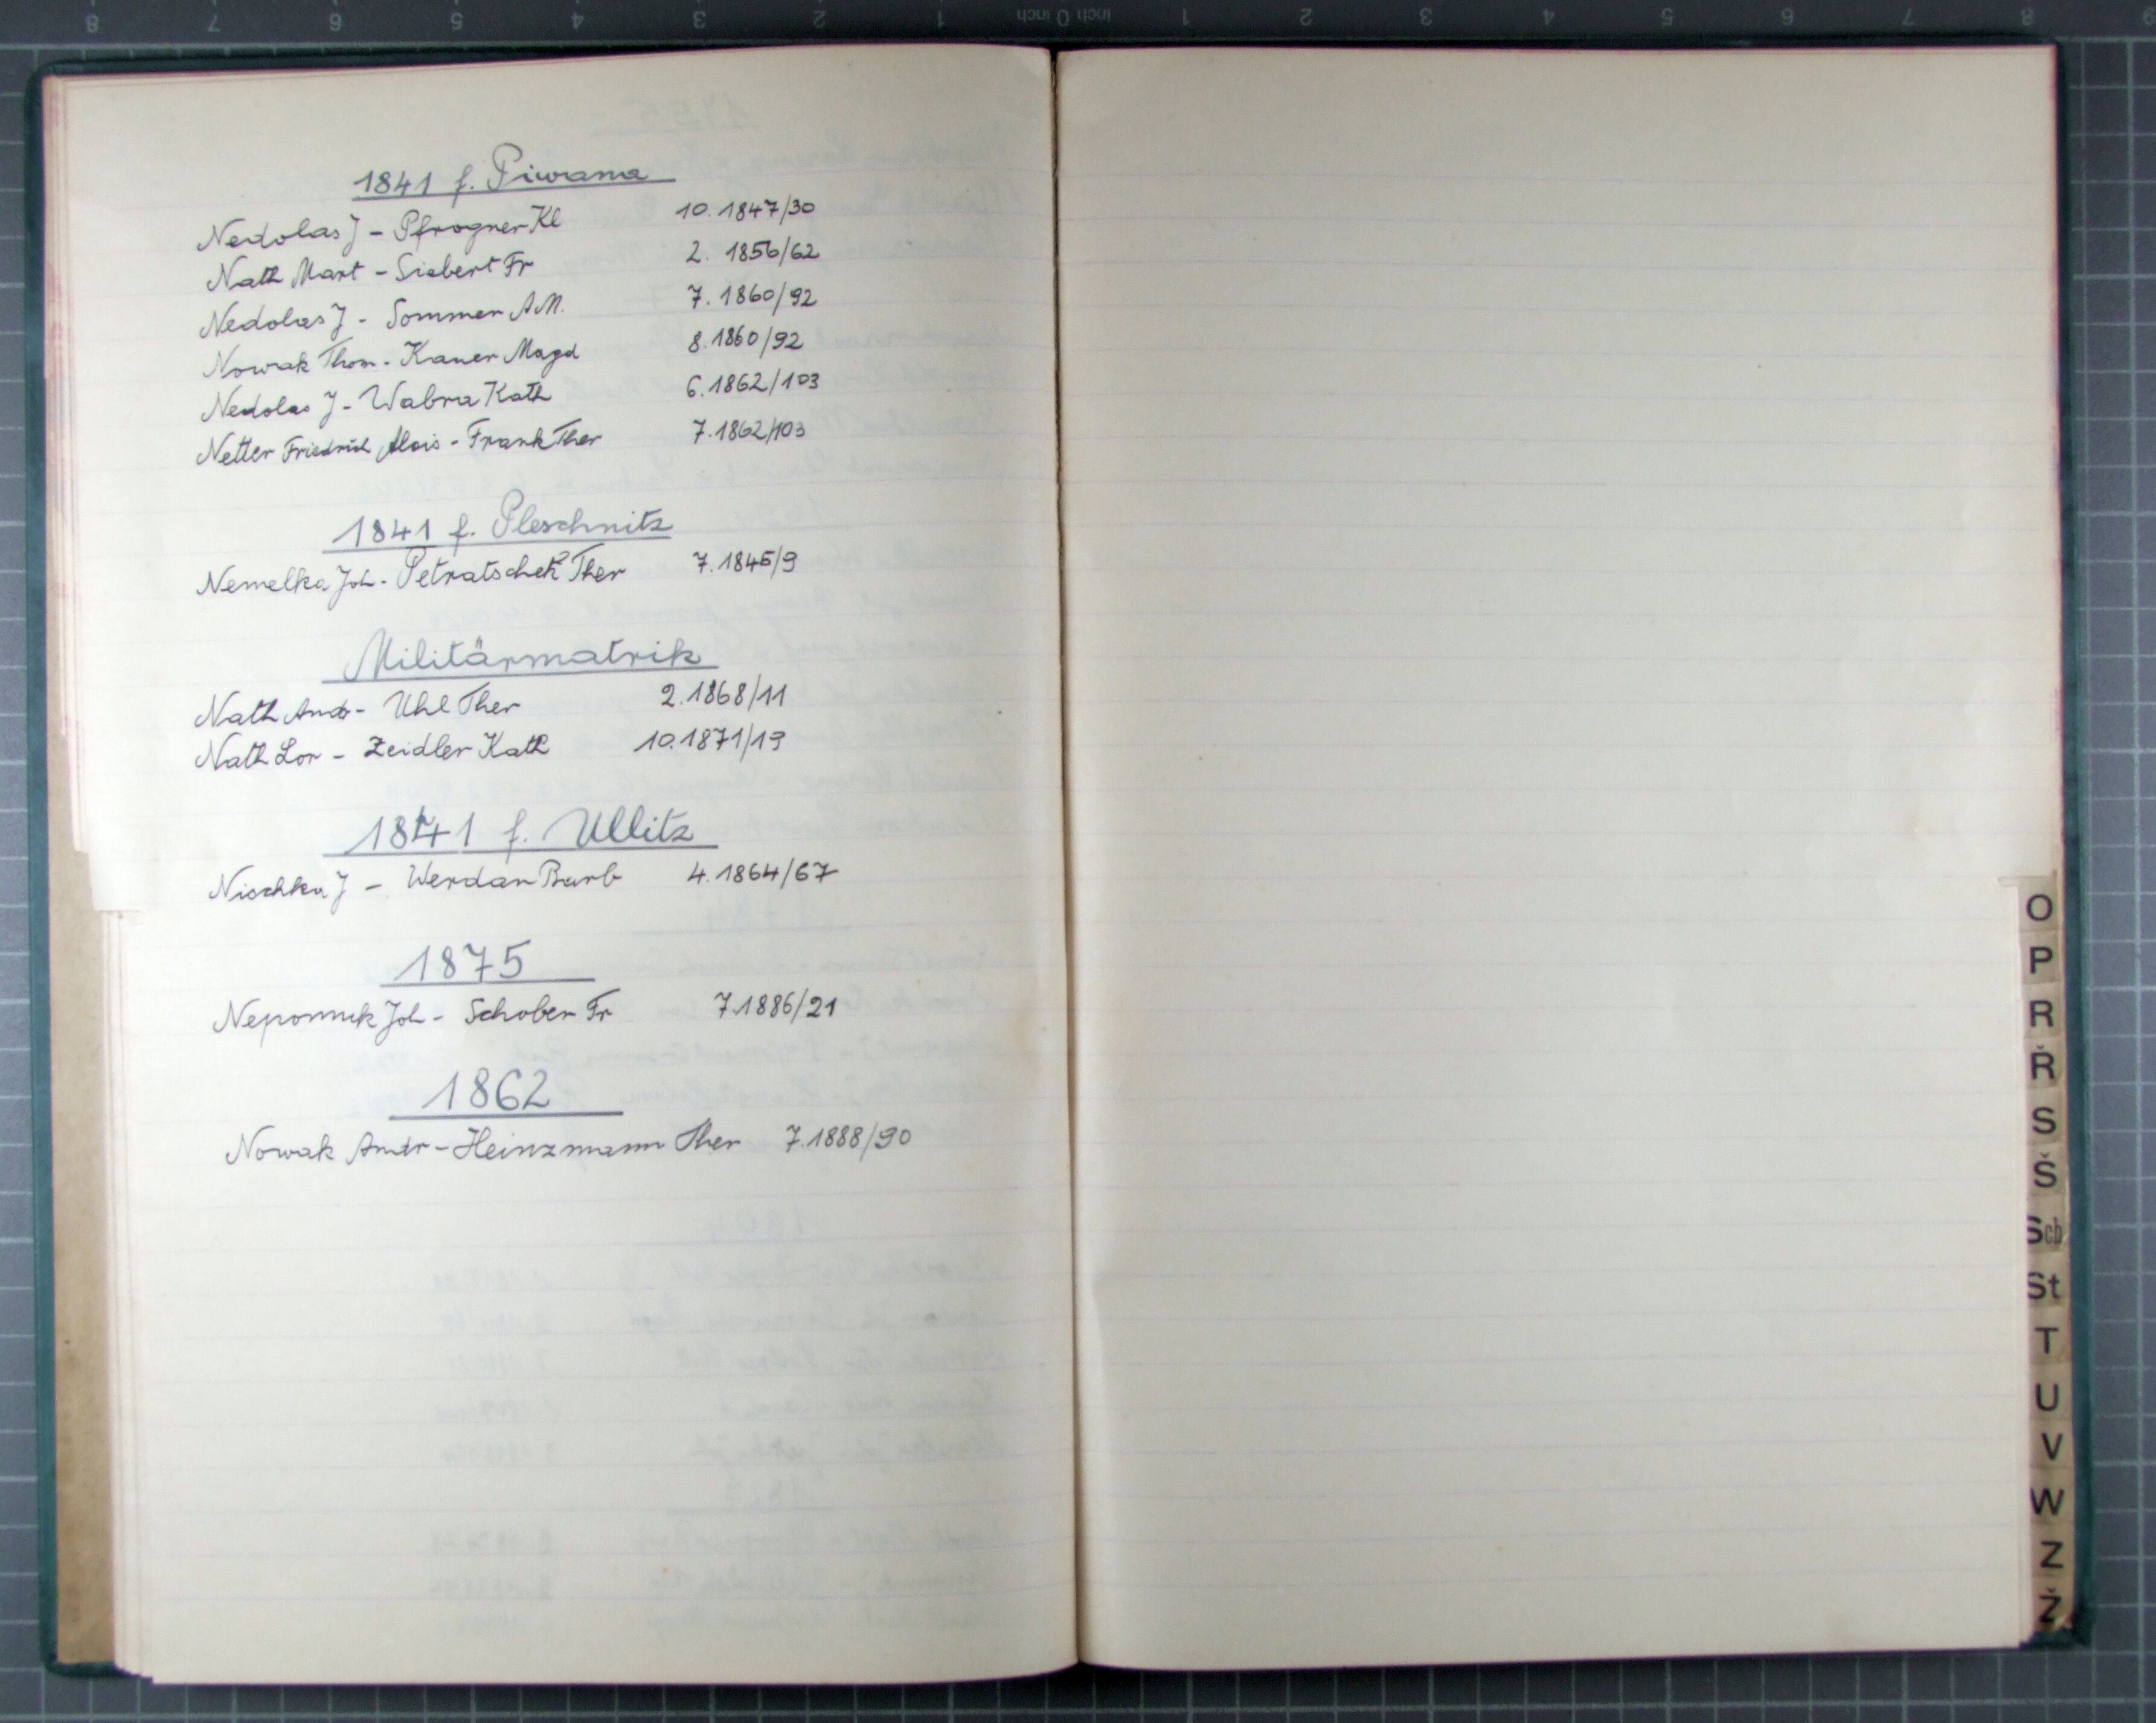 1841 f. Piwana
Nedolas J - Pfrogner Kl 10. 1847/30
Nath Mart - Siebert Fr 2. 1856/62
Nedolas J - Sommer A.M. 7. 1860/92
Nowak Thom. - Kauer Magd 8. 1860/92
Nedolas J - Wabra Kath 6. 1862/103
Netter Friedrich Alois - Frank Ther 7. 1862/103
1841 f. Pleschnitz
Nemelka Joh. - Petratschek Ther 7. 1845/9
Militärmatrik
Nath Andr - Uhl Ther 2. 1868/11
Nath Lor - Zeidler Kath 10. 1871/19
1841 f. Ullitz
Nischka J - Werdan Barb 4. 1864/67
1875
Nepomuk Joh - Schober Fr 7. 1886/21
1862
Nowak Andr - Heinzmann Ther 7. 1888/90
O
P
R
Ř
S
Š
Sch
St
T
U
V
W
Z
Ž
8 7 6 5 4 3 2 1 inch 0 inch 1 2 3 4 5 6 7 8 9